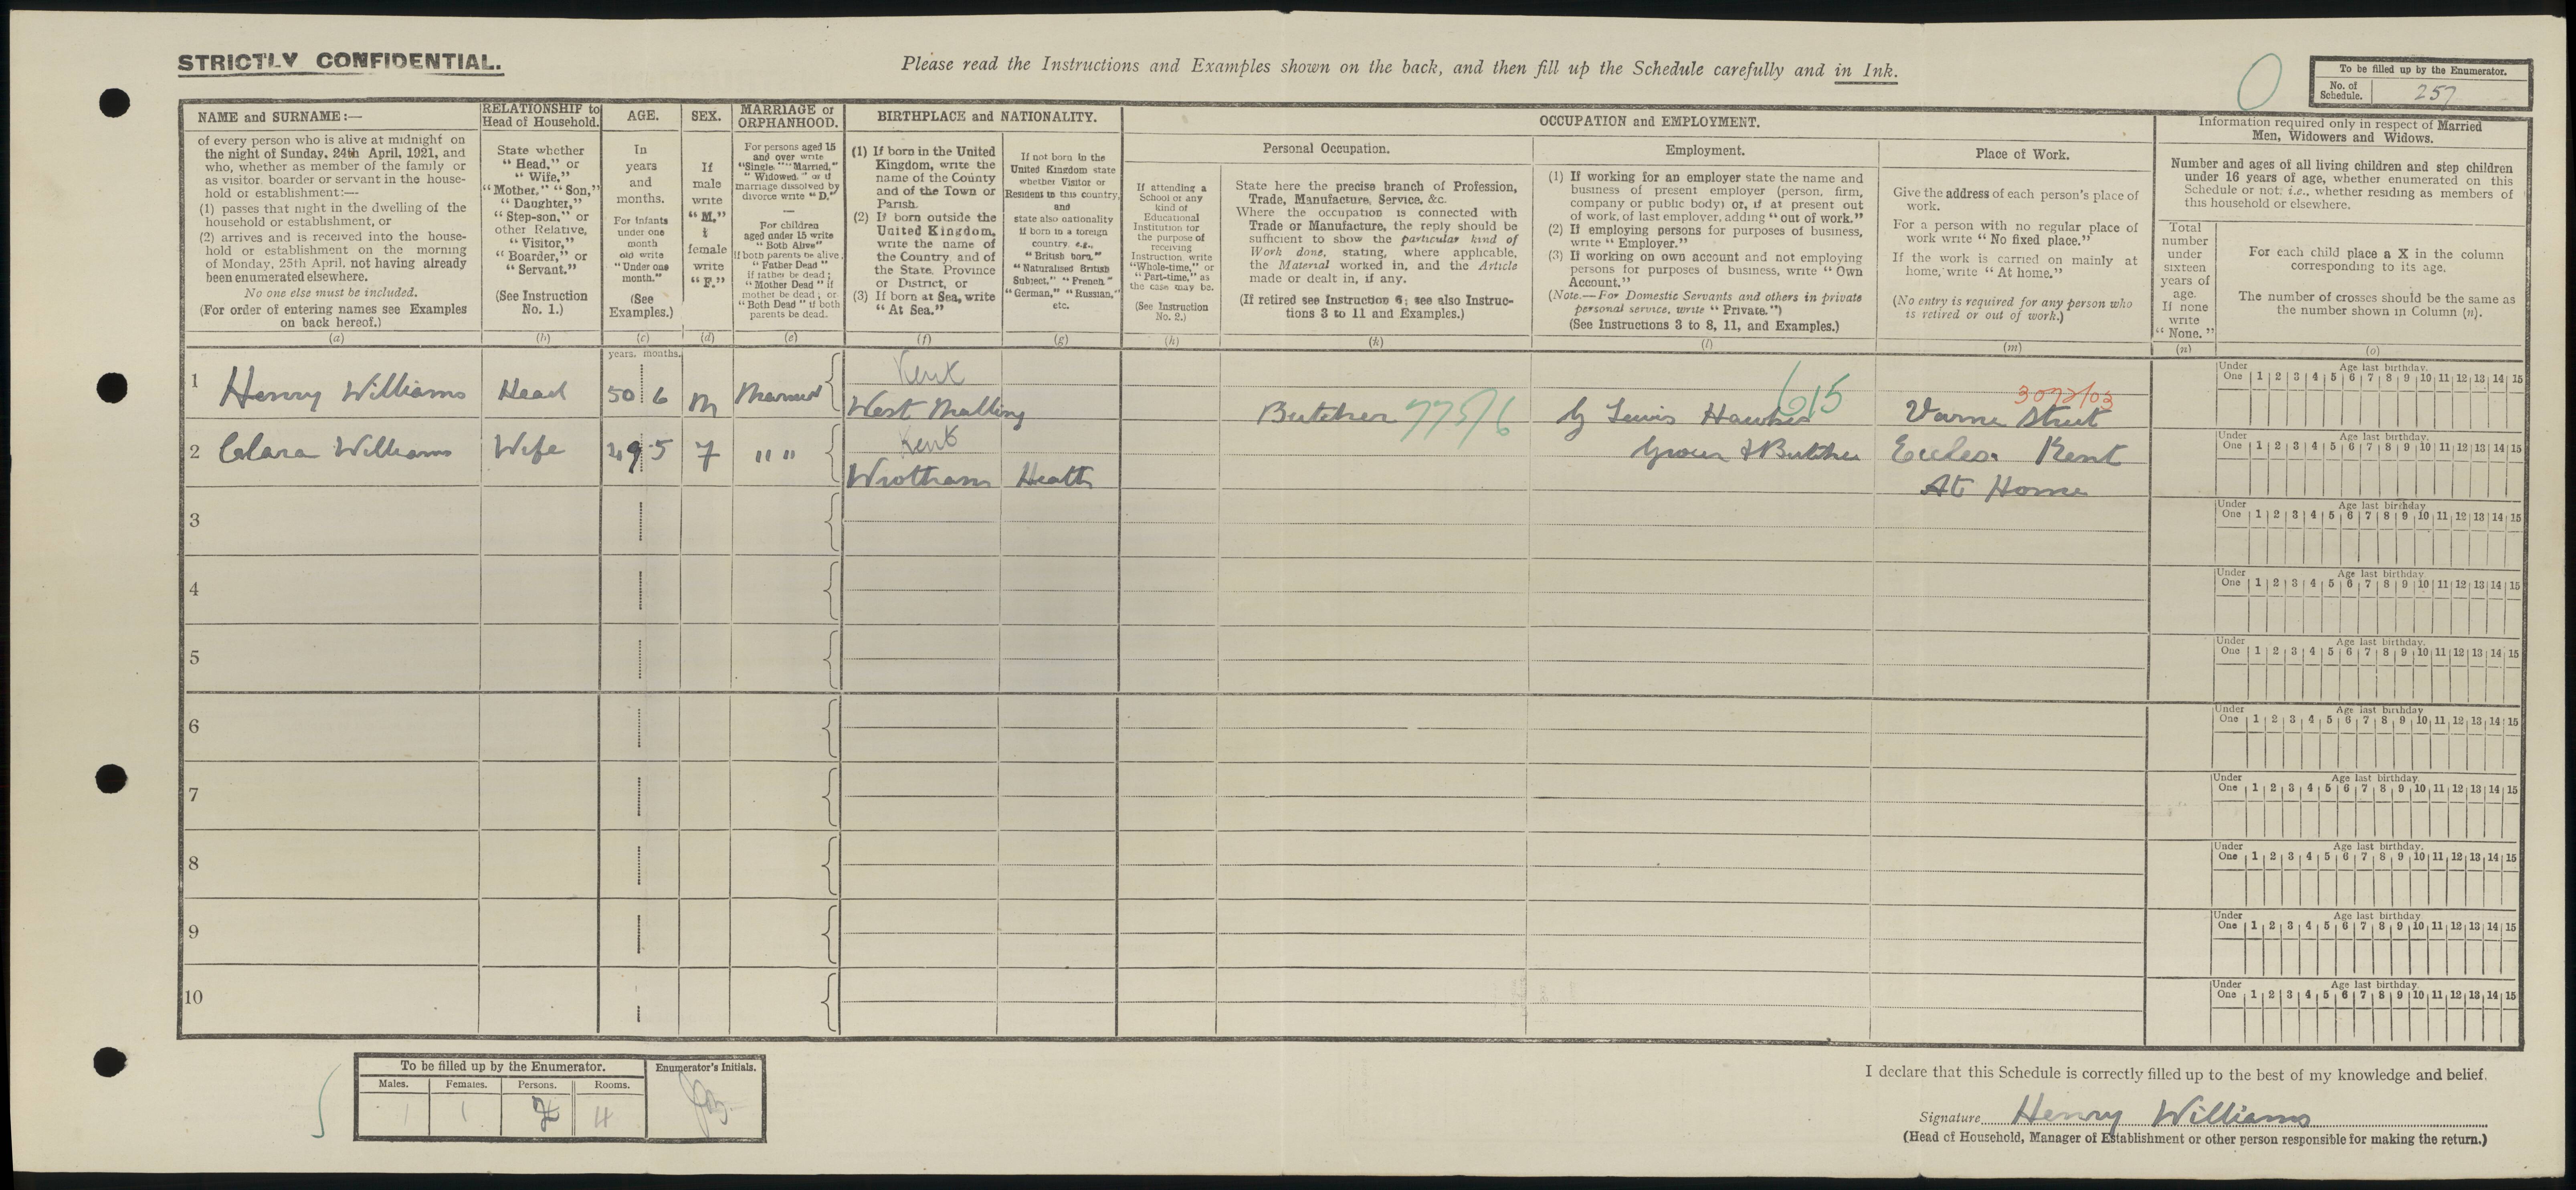 STRICTLY CONFIDENTIAL.
Please read the Instructions and Examples shown on the back, and then fill up the Schedule carefully and in Ink.
To be filled up by the Enumerator.
No. of Schedule. 257
NAME and SURNAME:—
of every person who is alive at midnight on
the night of Sunday, 24th April, 1921, and
who, whether as member of the family or
as visitor, boarder or servant in the house-
hold or establishment:—
(1) passes that night in the dwelling of the
household or establishment, or
(2) arrives and is received into the house-
hold or establishment on the morning
of Monday, 25th April, not having already
been enumerated elsewhere.
No one else must be included.
(For order of entering names see Examples
on back hereof.)
(a)
RELATIONSHIP to
Head of Household.
State whether
"Head," or
"Wife,"
"Mother," "Son,"
"Daughter,"
"Step-son," or
other Relative,
"Visitor,"
"Boarder," or
"Servant."
(See Instruction
No. 1.)
(b)
AGE.
In
years
and
months.
For infants
under one
month
old write
"Under one
month."
(See
Examples.)
(c)
SEX.
If
male
write
"M."
female
write
"F."
(d)
MARRIAGE or
ORPHANHOOD.
For persons aged 15
and over write
"Single," "Married,"
"Widowed," or if
marriage dissolved by
divorce write "D."
For children
aged under 15 write
"Both Alive"
if both parents be alive,
"Father Dead"
if father be dead;
"Mother Dead" if
mother be dead; or
"Both Dead" if both
parents be dead.
(e)
BIRTHPLACE and NATIONALITY.
(1) If born in the United
Kingdom, write the
name of the County
and of the Town or
Parish.
(2) If born outside the
United Kingdom,
write the name of
the Country, and of
the State, Province
or District, or
(3) If born at Sea, write
"At Sea."
(f)
If not born in the
United Kingdom state
whether Visitor or
Resident in this country,
and
state also nationality
if born in a foreign
country, e.g.,
"British born,"
"Naturalised British
Subject," "French"
"German," "Russian,"
etc.
(g)
OCCUPATION and EMPLOYMENT.
Personal Occupation.
If attending a
School or any
kind of
Educational
Institution for
the purpose of
receiving
Instruction, write
"Whole-time," or
"Part-time," as
the case may be.
(See Instruction
No. 2.)
(h)
State here the precise branch of Profession,
Trade, Manufacture, Service, &c.
Where the occupation is connected with
Trade or Manufacture, the reply should be
sufficient to show the particular kind of
Work done, stating, where applicable,
the Material worked in, and the Article
made or dealt in, if any.
(If retired see Instruction 6; see also Instruc-
tions 3 to 11 and Examples.)
(k)
Employment.
(1) If working for an employer state the name and
business of present employer (person, firm,
company or public body) or, if at present out
of work, of last employer, adding "out of work."
(2) If employing persons for purposes of business,
write "Employer."
(3) If working on own account and not employing
persons for purposes of business, write "Own
Account."
(Note.—For Domestic Servants and others in private
personal service, write "Private.")
(See Instructions 3 to 8, 11, and Examples.)
(l)
Place of Work.
Give the address of each person's place of
work.
For a person with no regular place of
work write "No fixed place."
If the work is carried on mainly at
home, write "At home."
(No entry is required for any person who
is retired or out of work.)
(m)
Information required only in respect of Married
Men, Widowers and Widows.
Number and ages of all living children and step children
under 16 years of age, whether enumerated on this
Schedule or not; i.e., whether residing as members of
this household or elsewhere.
Total
number
under
sixteen
years of
age.
If none
write
"None."
(n)
For each child place a X in the column
corresponding to its age.
The number of crosses should be the same as
the number shown in Column (n).
(o)
years. months.
1 Henry Williams Head 50 6 M Married Kent
West Malling Butcher 775/6 G Lewis Hawkes 615 Varne Street 3072/03
Under One Age last birthday. 1 2 3 4 5 6 7 8 9 10 11 12 13 14 15
2 Clara Williams Wife 49 5 F " " Kent
Wrotham Heath Grocer & Butcher Eccles. Kent
At Home
Under One Age last birthday. 1 2 3 4 5 6 7 8 9 10 11 12 13 14 15
3 Under One Age last birthday 1 2 3 4 5 6 7 8 9 10 11 12 13 14 15
4 Under One Age last birthday. 1 2 3 4 5 6 7 8 9 10 11 12 13 14 15
5 Under One Age last birthday. 1 2 3 4 5 6 7 8 9 10 11 12 13 14 15
6 Under One Age last birthday 1 2 3 4 5 6 7 8 9 10 11 12 13 14 15
7 Under One Age last birthday. 1 2 3 4 5 6 7 8 9 10 11 12 13 14 15
8 Under One Age last birthday. 1 2 3 4 5 6 7 8 9 10 11 12 13 14 15
9 Under One Age last birthday 1 2 3 4 5 6 7 8 9 10 11 12 13 14 15
10 Under One Age last birthday. 1 2 3 4 5 6 7 8 9 10 11 12 13 14 15
To be filled up by the Enumerator.
Males. Females. Persons. Rooms.
1 1 2 4
Enumerator's Initials.
I declare that this Schedule is correctly filled up to the best of my knowledge and belief.
Signature Henry Williams
(Head of Household, Manager of Establishment or other person responsible for making the return.)